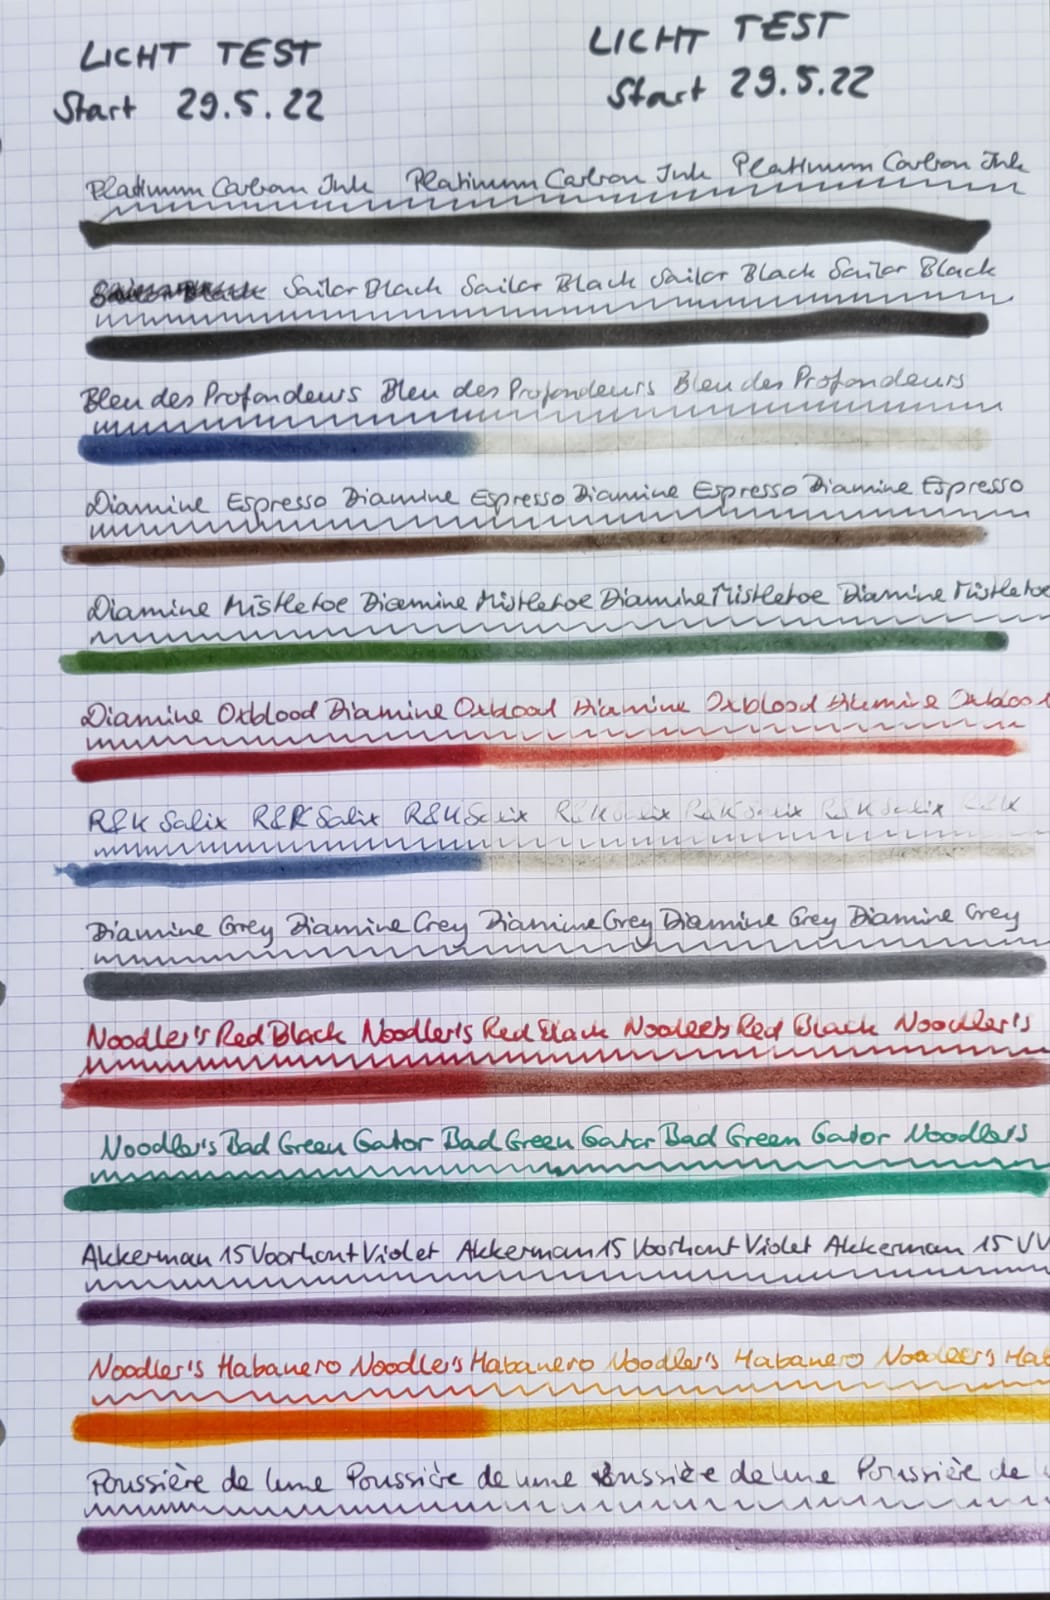 LICHT TEST LICHT TEST
Start 29.5.22 Start 29.5.22
Platinum Carbon Ink Platinum Carbon Ink Platinum Carbon Ink
Sailor Black Sailor Black Sailor Black Sailor Black
Bleu des Profondeurs Bleu des Profondeurs Bleu des Profondeurs
Diamine Espresso Diamine Espresso Diamine Espresso Diamine Espresso
Diamine Mistletoe Diamine Mistletoe Diamine Mistletoe Diamine Mistletoe
Diamine Oxblood Diamine Oxblood Diamine Oxblood Diamine Oxblood
R&K Salix R&K Salix R&K Salix R&K Salix R&K Salix R&K Salix R&K
Diamine Grey Diamine Grey Diamine Grey Diamine Grey Diamine Grey
Noodler's Red Black Noodler's Red Black Noodler's Red Black Noodler's
Noodler's Bad Green Gator Bad Green Gator Bad Green Gator Noodler's
Akkerman 15 Voorhout Violet Akkerman 15 Voorhout Violet Akkerman 15 VV
Noodler's Habanero Noodler's Habanero Noodler's Habanero Noodler's Hab
Poussière de lune Poussière de lune Poussière de lune Poussière de